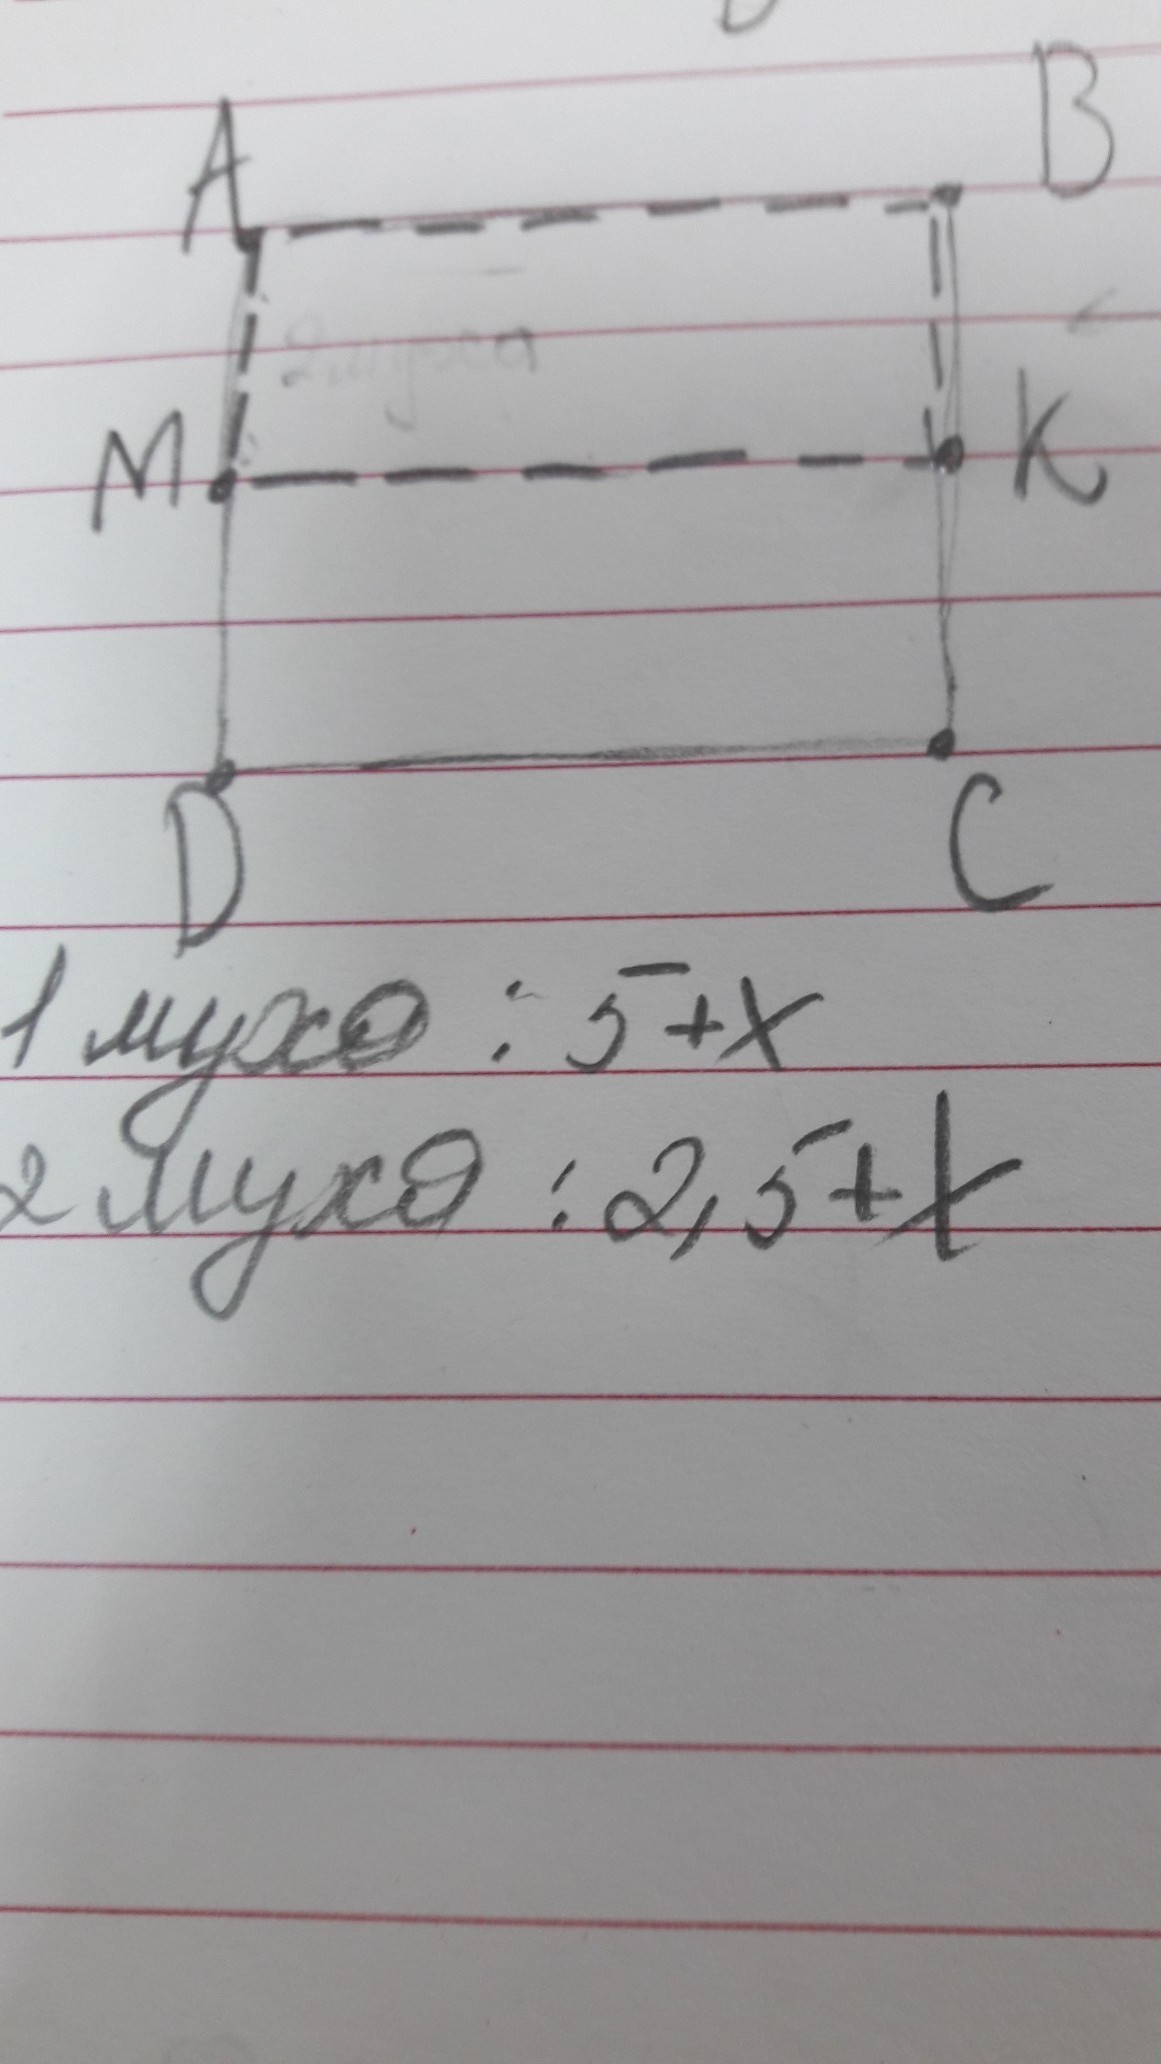 A B
2 муха
M K
D C
1 муха : 5+x
2 муха : 2,5+x